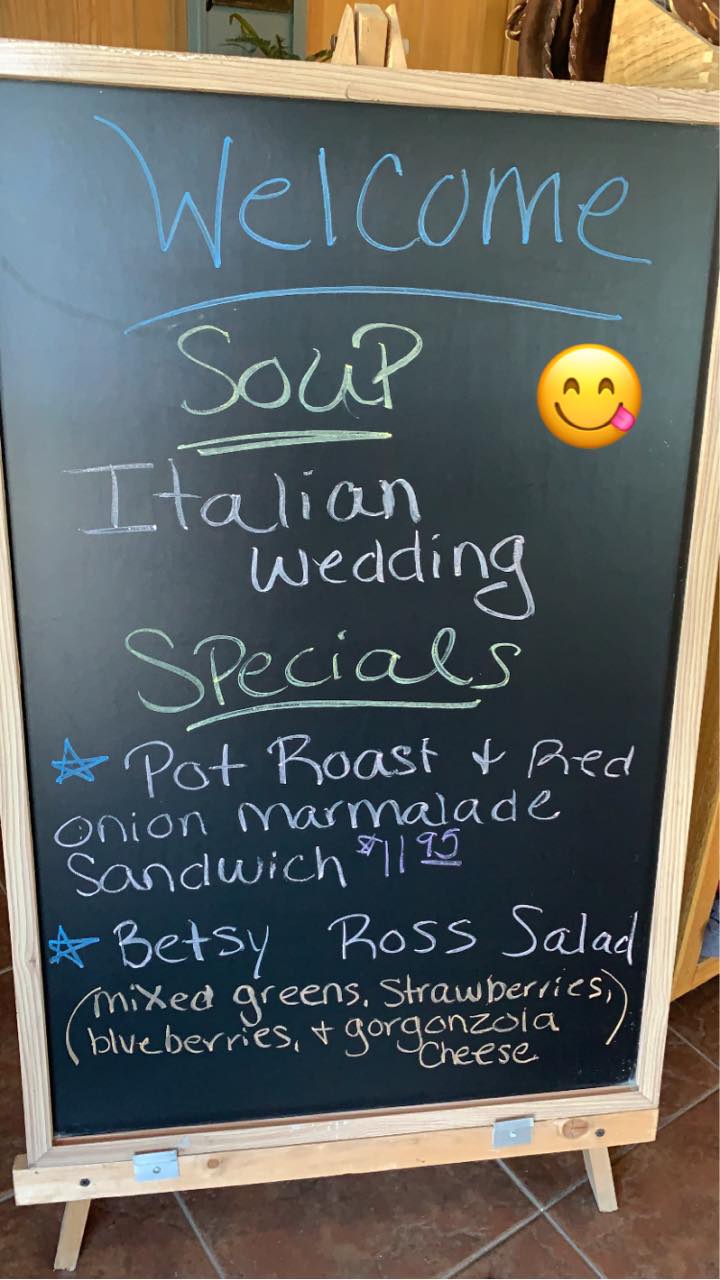 Welcome
Soup
Italian
Wedding
Specials
Pot Roast + Red
onion marmalade
Sandwich $11 95
Betsy Ross Salad
(mixed greens, Strawberries,
blueberries, + gorgonzola
cheese)